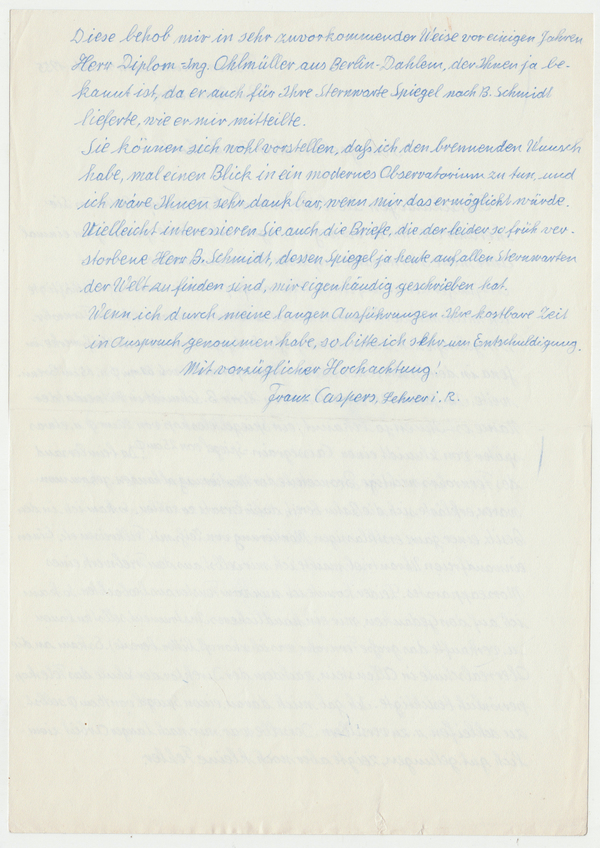 Diese behob mir in sehr zuvorkommender Weise vor einigen Jahren
Herr Diplom Ing. Ohlmüller, aus Berlin-Dahlem, der Ihnen ja be-
kannt ist, da er auch für Ihre Sternwarte Spiegel nach B. Schmidt
lieferte, wie er mir mitteilte.
Sie können sich wohl vorstellen, daß ich den brennenden Wunsch
habe, mal einen Blick in ein modernes Observatorium zu tun, und
ich wäre Ihnen sehr dankbar, wenn mir das ermöglicht würde.
Vielleicht interessieren Sie auch die Briefe, die der leider so früh ver-
storbene Herr B. Schmidt, dessen Spiegel ja heute auf allen Sternwarten
der Welt zu finden sind, mir eigenhändig geschrieben hat.
Wenn ich durch meine langen Ausführungen Ihre kostbare Zeit
in Anspruch genommen habe, so bitte ich sehr um Entschuldigung.
Mit vorzüglicher Hochachtung!
Franz Caspers, Lehrer i. R.